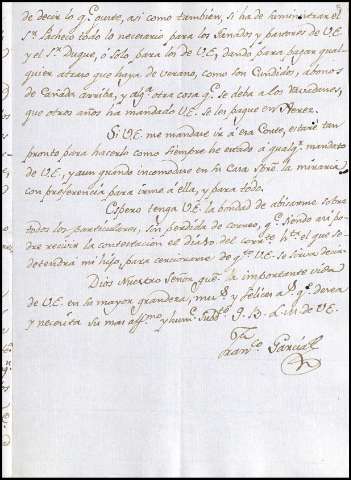 de decir lo q.e ocurre, así como también, si ha de suministrar el
S.r Pacheco todo lo necesario para los Ganados y pastores de V.E
y el S.r Duque, ó solo para los de V.E, dando para pagar qual
quier atraso que haya de verano, como son Cundidos, abonos
de Cañada arriba, y alg.a otra cosa q.e se deba á los
que otros años ha mandado V.E. se les pague en Xerez.
Si V.E. me mandare ir á esa Corte, estaré tan
pronto para hacerlo como siempre he estado á qualq.r mandato
de V.E, y aun quando incomodase en su Casa la miraria
con preferencia para irme á ella, y para todo.
Espero tenga V.E. la bondad de avisarme sobre
todos los particulares, sin perdida de correo, q.e siendo asi po
dre recivir la contestacion el dia 20 del corr.te h.ta el que se
detendrá mi hijo, para cerciorarme de q.to V.E. se sirva decir.
Dios Nuestro Señor gue. la importante vida
de V.E. en su mayor grandeza, m.s a.s y felices a.s q.e desea
y necesita su mas aff.mo y hum.e Subd.to Q. B. L. M. de V.E.
Fran.co García